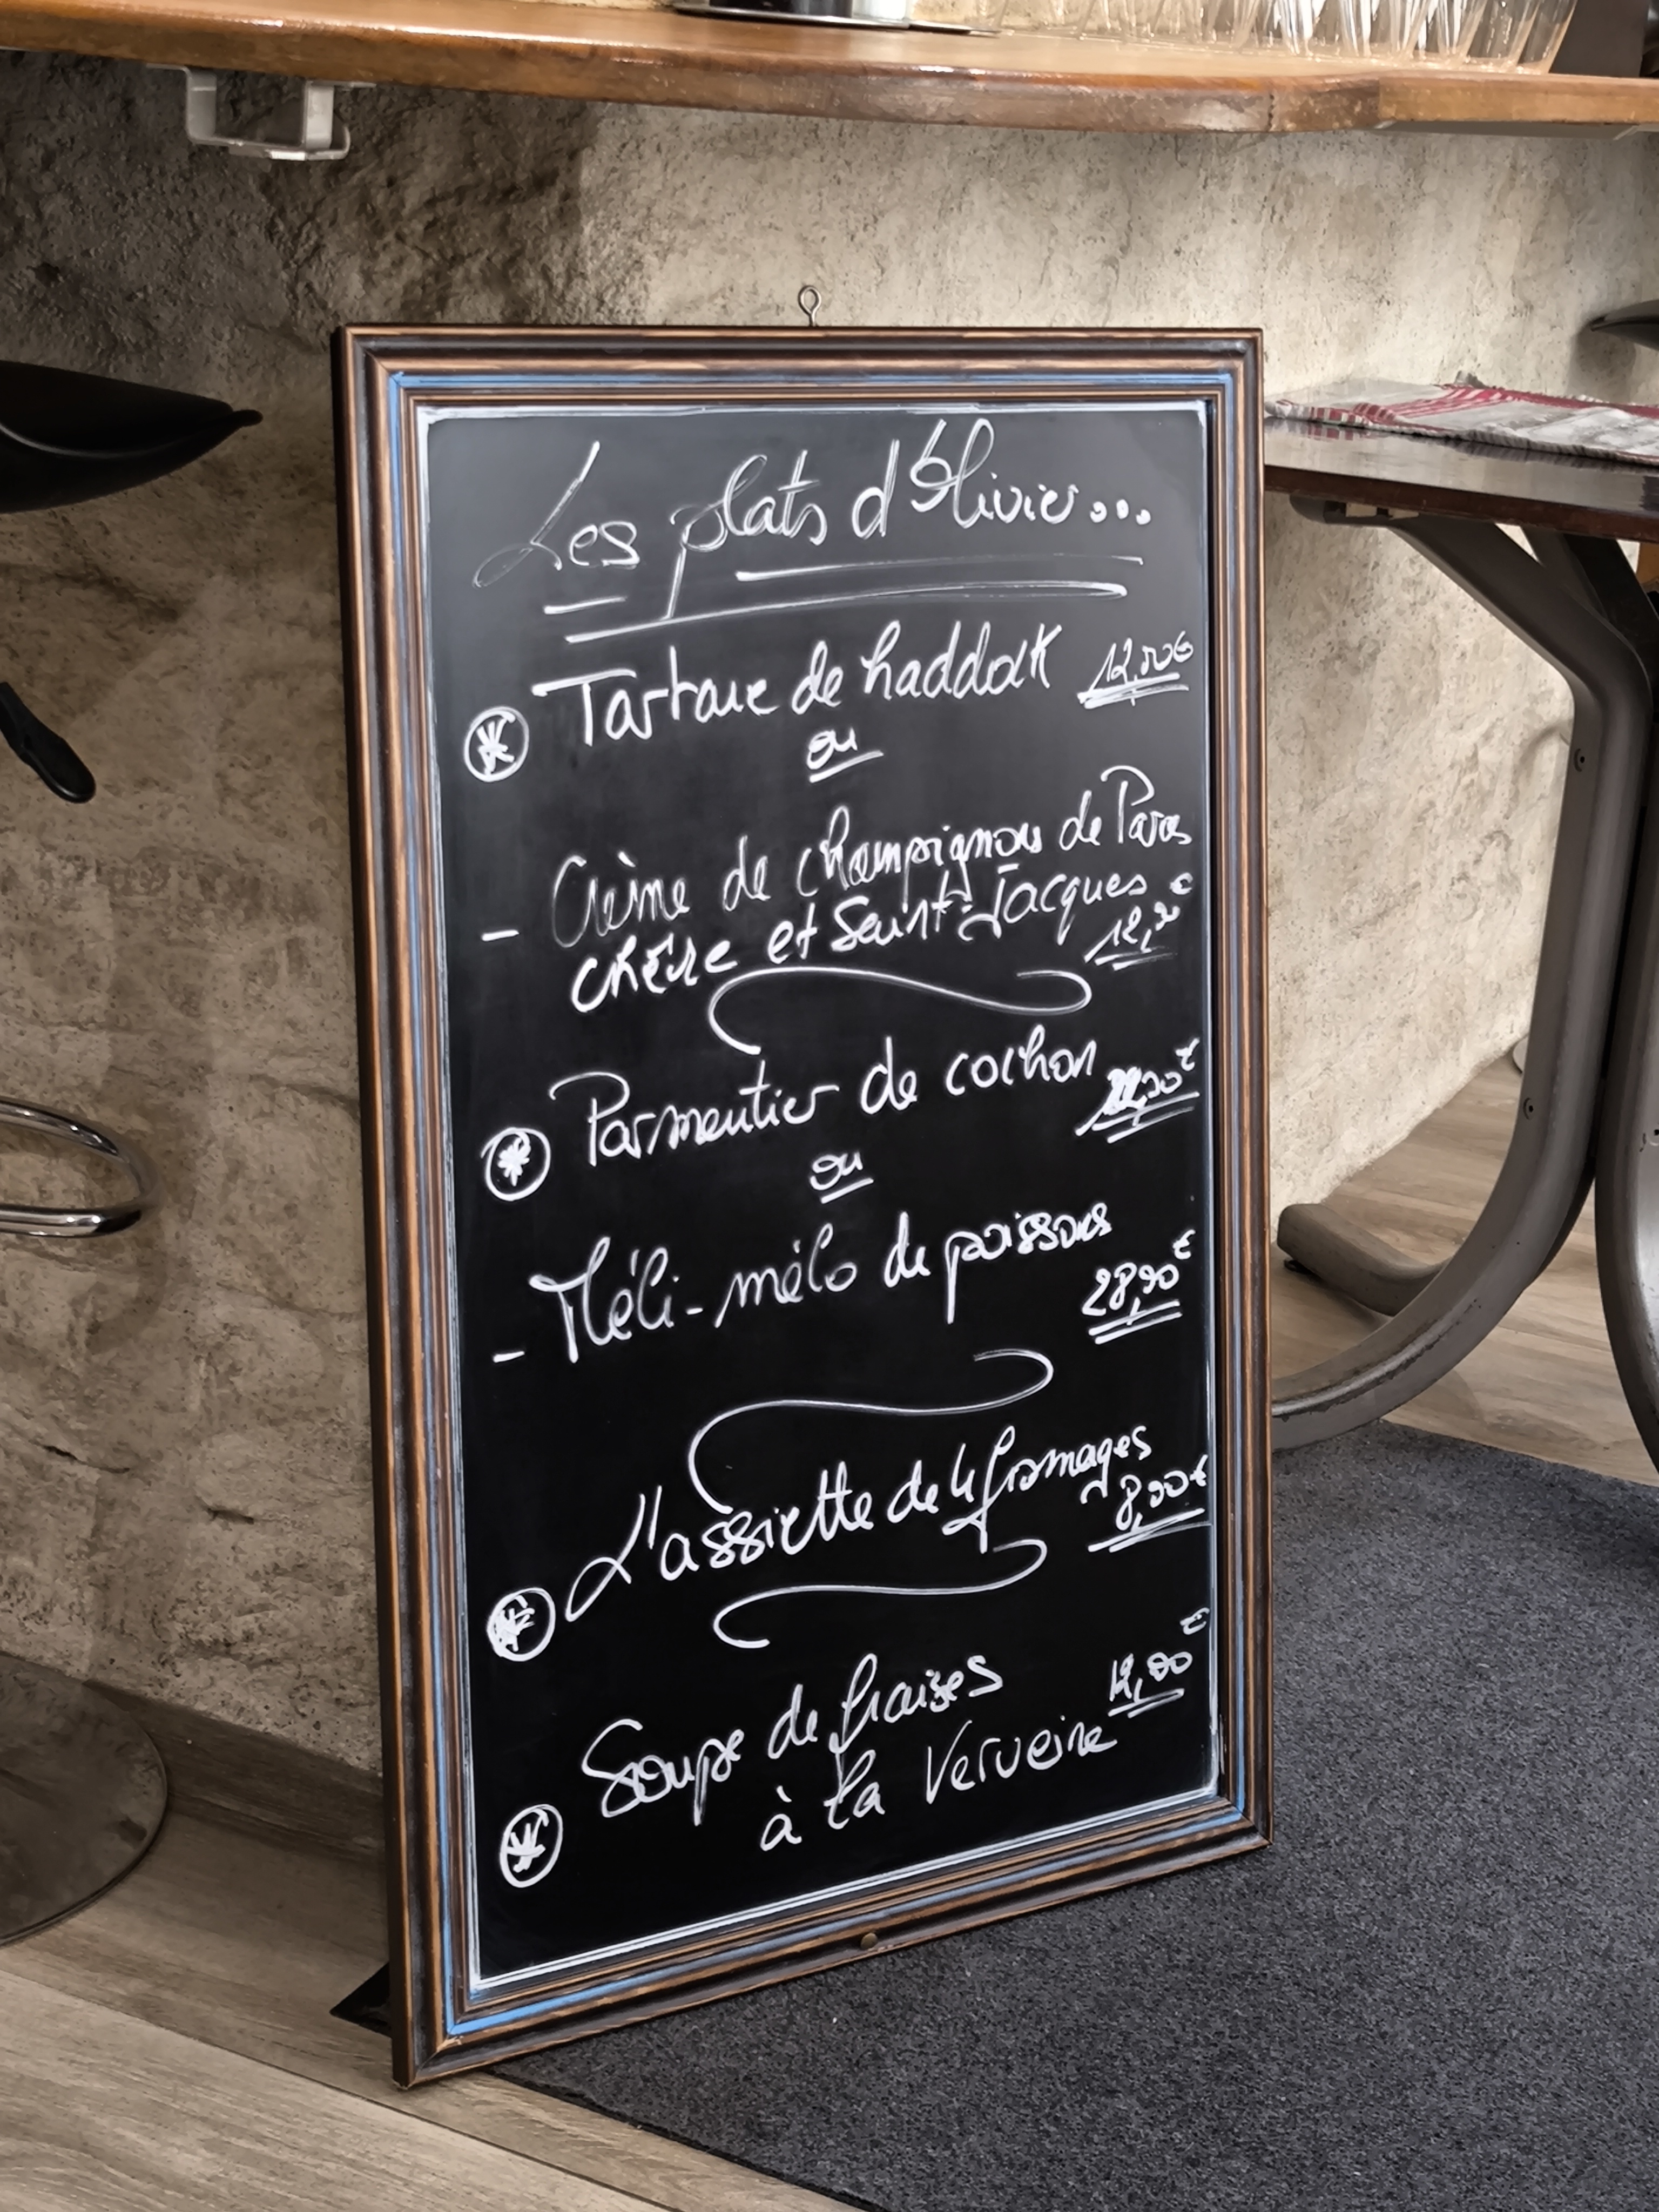 Les plats d'Olivier...
Tartare de haddock 12,00€
ou
- Crème de champignons de Paris
chèvre et Saint-Jacques 12,90€
Parmentier de cochon
ou
- Méli-mélo de poissons
28,90€
L'assiette de 4 fromages
8,90€
Soupe de fraises 12,00€
à la Verveine